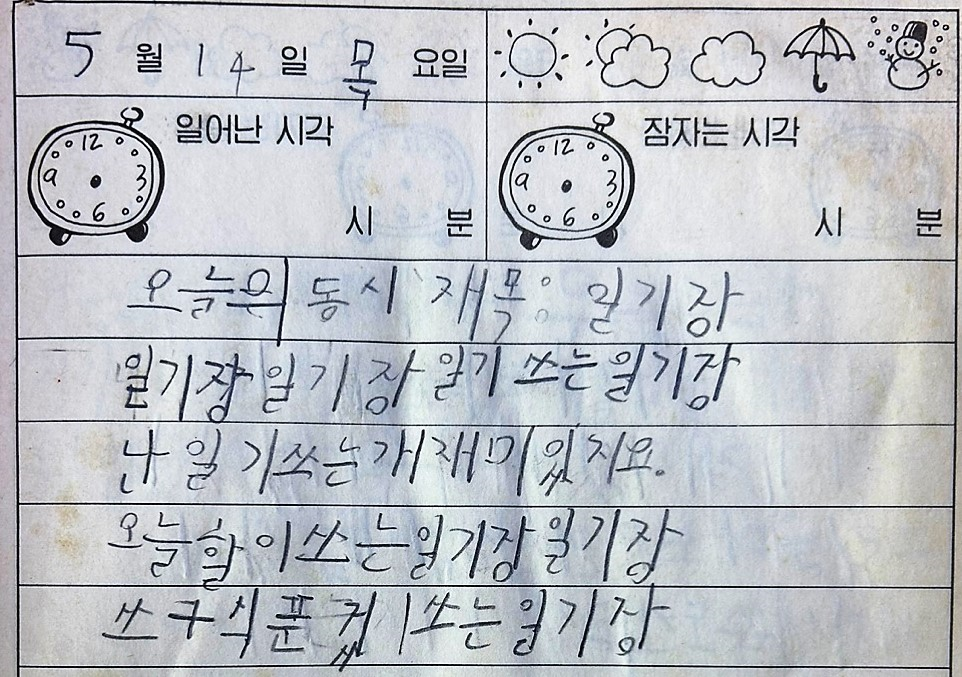 5 월 14 일 목 요일
일어난 시각
12 3 6 9
시 분
잠자는 시각
12 3 6 9
시 분
오늘은 동시 재목: 일기장
일기장 일기장 일기 쓰는 일기장
나 일기쓰는개 재미있지요.
오늘할이쓰는일기장일기장
쓰구식푼것 쓰는일기장